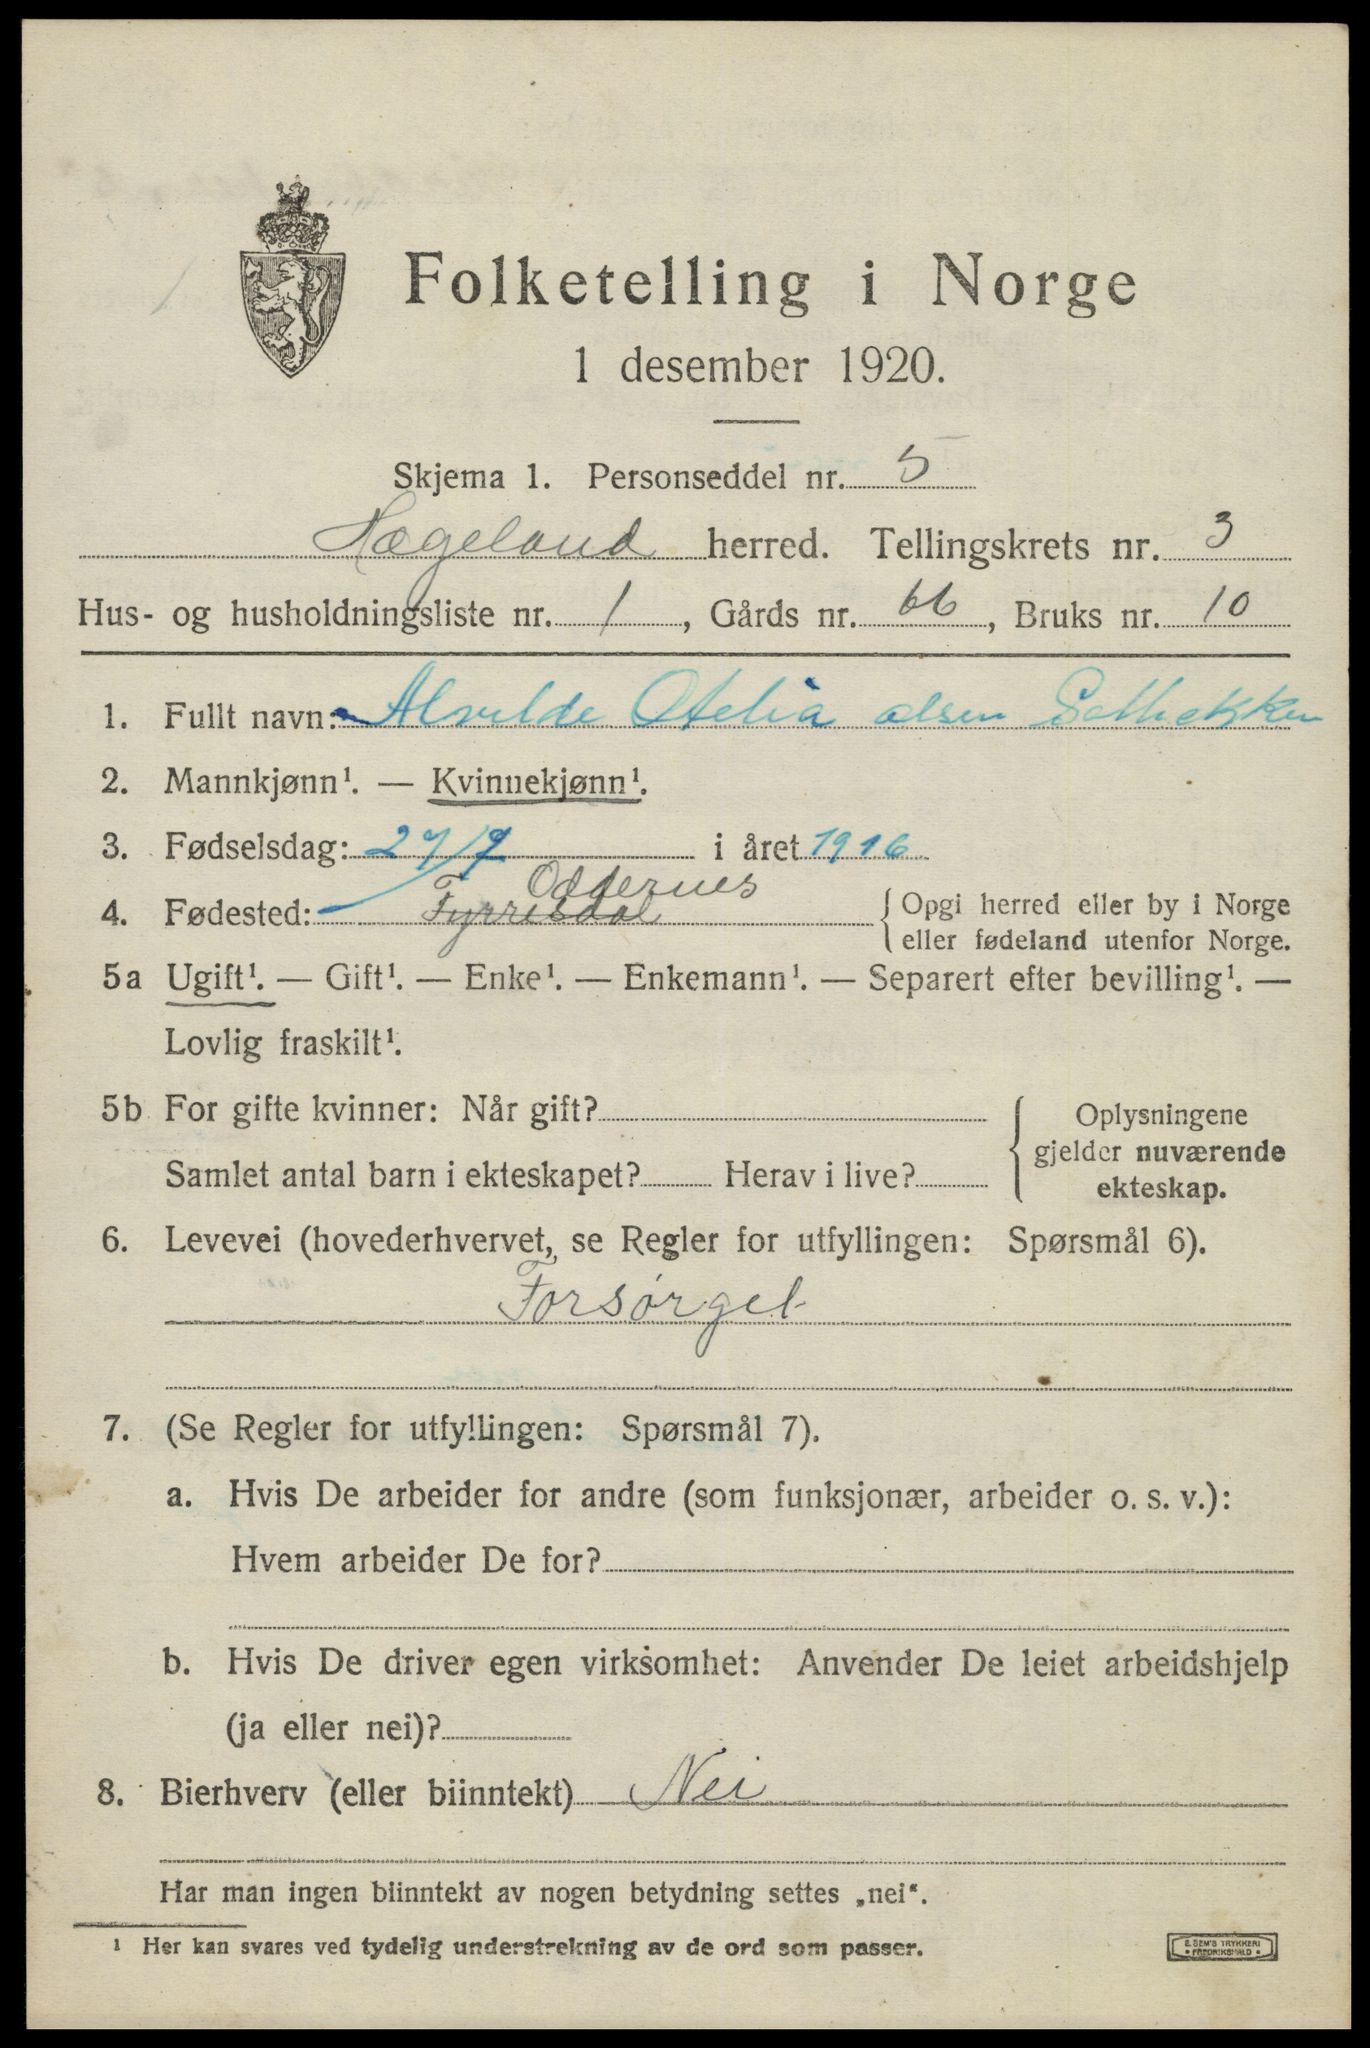 Folketelling i Norge
1 desember 1920.
Skjema 1. Personseddel nr. 5
Hægeland herred. Tellingskrets nr. 3
Hus- og husholdningsliste nr. 1, Gårds nr. 66, Bruks nr. 10
1. Fullt navn: Alvilde Otelia olsen
2. Mannkjønn¹. — Kvinnekjønn¹.
3. Fødselsdag: i året 1916
Oddernes
4. Fødested: Fyrresdal { Opgi herred eller by i Norge
eller fødeland utenfor Norge.
5a Ugift¹. — Gift¹. — Enke¹. — Enkemann¹. — Separert efter bevilling¹. —
Lovlig fraskilt¹.
5b For gifte kvinner: Når gift? { Oplysningene
gjelder nuværende
Samlet antal barn i ekteskapet? Herav i live? ekteskap.
6. Levevei (hovederhvervet, se Regler for utfyllingen: Spørsmål 6).
Forsørget
7. (Se Regler for utfyllingen: Spørsmål 7).
a. Hvis De arbeider for andre (som funksjonær, arbeider o. s. v.):
Hvem arbeider De for?
b. Hvis De driver egen virksomhet: Anvender De leiet arbeidshjelp
(ja eller nei)?
8. Bierhverv (eller biinntekt) Nei
Har man ingen biinntekt av nogen betydning settes „nei“.
¹ Her kan svares ved tydelig understrekning av de ord som passer.
E. SEM'S TRYKKERI
• FREDRIKSHALD •